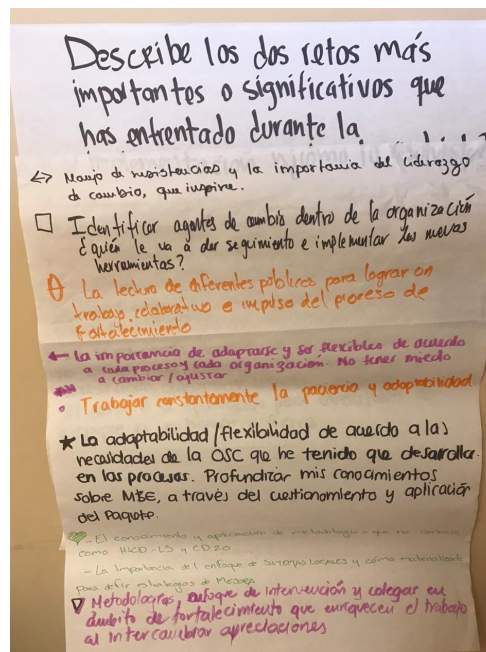 Describe los dos retos más
importantes o significativos que
has enfrentado durante la
Manejo de resistencias y la importancia del liderazgo
de cambio, que inspire.
Identificar agentes de cambio dentro de la organización
¿quién le va a dar seguimiento e implementar las nuevas
herramientas?
La lectura de diferentes públicos para lograr un
trabajo colaborativo e impulso del proceso de
fortalecimiento
← La importancia de adaptarse y ser flexibles de acuerdo
a cada proceso y cada organización. No tener miedo
a cambiar / ajustar
Trabajar constantemente la paciencia y adaptabilidad
★ La adaptabilidad / flexibilidad de acuerdo a la(s)
necesidades de la OSC que he tenido que desarrollar
en los procesos. Profundizar mis conocimientos
sobre M&E, a través del cuestionamiento y aplicación
del Paquete.
- El conocimiento y aplicación de metodologías que no
como y CD20
- La importancia del enfoque de sistemas locales y cómo
para definir estrategias de
Metodologías, enfoque de intervención y colegas en
ámbito de fortalecimiento que enriquecen el trabajo
al intercambiar apreciaciones